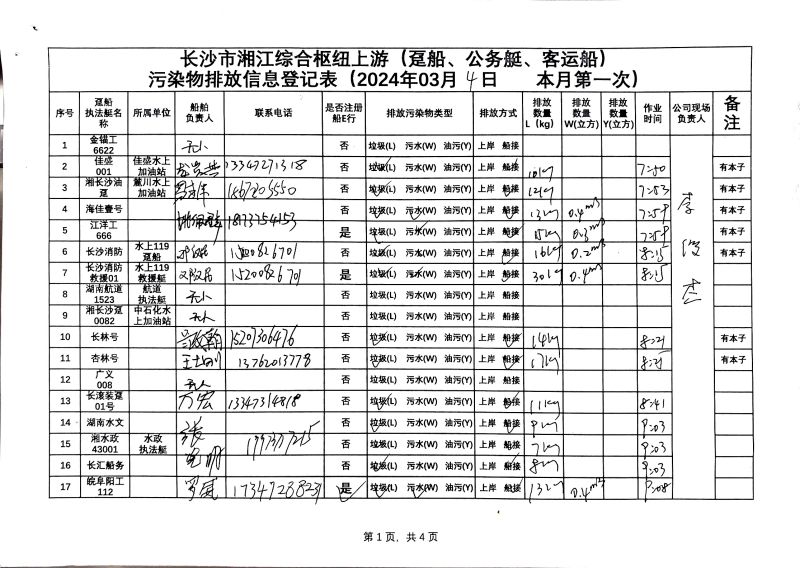 长沙市湘江综合枢纽上游（趸船、公务艇、客运船）
污染物排放信息登记表（2024年03月 4 日 本月第一次）
序号 趸船执法艇名称 所属单位 船舶负责人 联系电话 是否注册船E行 排放污染物类型 排放方式 排放数量L（kg） 排放数量W(立方) 排放数量Y(立方) 作业时间 公司现场负责人 备注
1 金锚工6622 无人 否 垃圾(L) 污水(W) 油污(Y) 上岸 船接
2 佳盛001 佳盛水上加油站 否 垃圾(L) 污水(W) 油污(Y) 上岸 船接 10kg 7:50 有本子
3 湘长沙油趸 麓川水上加油站 否 垃圾(L) 污水(W) 油污(Y) 上岸 船接 12kg 7:53 有本子
4 海佳壹号 18973254153 否 垃圾(L) 污水(W) 油污(Y) 上岸 船接 13kg 0.4m³ 7:59 有本子
5 江洋工666 是 垃圾(L) 污水(W) 油污(Y) 上岸 船接 15kg 0.3m³ 7:59 有本子
6 长沙消防 水上119趸船 15200826701 否 垃圾(L) 污水(W) 油污(Y) 上岸 船接 16kg 0.2m³ 8:15 有本子
7 长沙消防救援01 水上119救援艇 15200826701 是 垃圾(L) 污水(W) 油污(Y) 上岸 船接 30kg 0.4m³ 8:15 有本子
8 湖南航道1523 航道执法艇 无人 否 垃圾(L) 污水(W) 油污(Y) 上岸 船接
9 湘长沙趸0082 中石化水上加油站 无人 否 垃圾(L) 污水(W) 油污(Y) 上岸 船接
10 长林号 15207306476 否 垃圾(L) 污水(W) 油污(Y) 上岸 船接 14kg 8:21 有本子
11 杏林号 13762013778 否 垃圾(L) 污水(W) 油污(Y) 上岸 船接 17kg 8:21 有本子
12 广义008 无人 否 垃圾(L) 污水(W) 油污(Y) 上岸 船接
13 长滚装趸01号 万宏 13347314818 否 垃圾(L) 污水(W) 油污(Y) 上岸 船接 11kg 8:41
14 湖南水文 否 垃圾(L) 污水(W) 油污(Y) 上岸 船接 9kg 9:03
15 湘水政43001 水政执法艇 否 垃圾(L) 污水(W) 油污(Y) 上岸 船接 7kg 9:03
16 长汇船务 否 垃圾(L) 污水(W) 油污(Y) 上岸 船接 8kg 9:03
17 皖阜阳工112 罗威 17347288231 是 垃圾(L) 污水(W) 油污(Y) 上岸 船接 13kg 0.4m³ 9:08
第 1 页，共 4 页